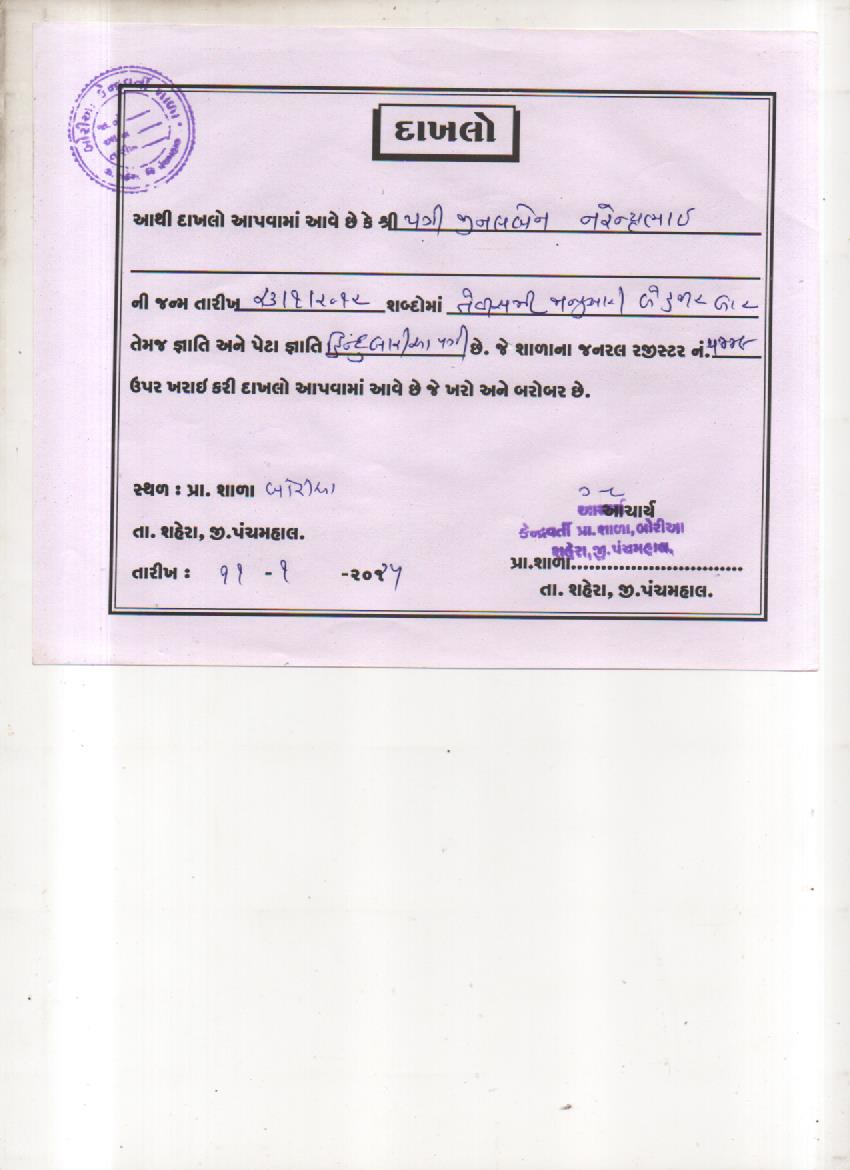 દાખલો
આથી દાખલો આપવામાં આવે છે કે શ્રી પગી જીનલબેન નરેન્દ્રભાઈ
ની જન્મ તારીખ ૨૩/૧/૨૦૧૨ શબ્દોમાં તેવીસમી જાન્યુઆરી બે હજાર બાર
તેમજ જ્ઞાતિ અને પેટા જ્ઞાતિ હિન્દુ બારીઆ પગી છે. જે શાળાના જનરલ રજીસ્ટર નં.
ઉપર ખરાઇ કરી દાખલો આપવામાં આવે છે જે ખરો અને બરોબર છે.
સ્થળ : પ્રા. શાળા બોરીઆ
આચાર્ય
કેન્દ્રવર્તી પ્રા.શાળા,બોરીઆ
તા. શહેરા, જી.પંચમહાલ.
શહેરા,જી.પંચમહાલ.
પ્રા.શાળા..............................
તારીખ : ૧૧ - ૧ -૨૦૨૫
તા. શહેરા, જી.પંચમહાલ.